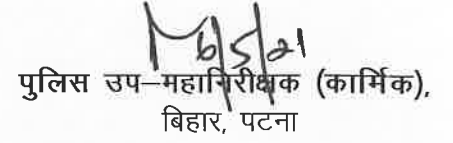 6/5/21
पुलिस उप–महानिरीक्षक (कार्मिक),
बिहार, पटना